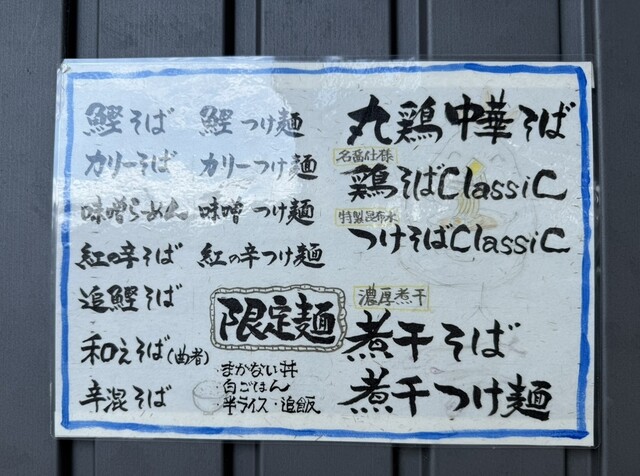 丸鶏中華そば
名古屋仕様
鶏そばClassiC
特製昆布水
つけそばClassiC
濃厚煮干
煮干そば
煮干つけ麺
鰹そば
鰹つけ麺
カリーそば
カリーつけ麺
味噌らーめん
味噌つけ麺
紅の辛そば
紅の辛つけ麺
追鰹そば
和えそば(曲者)
辛混そば
限定麺
・まかない丼
・白ごはん
・半ライス・追飯